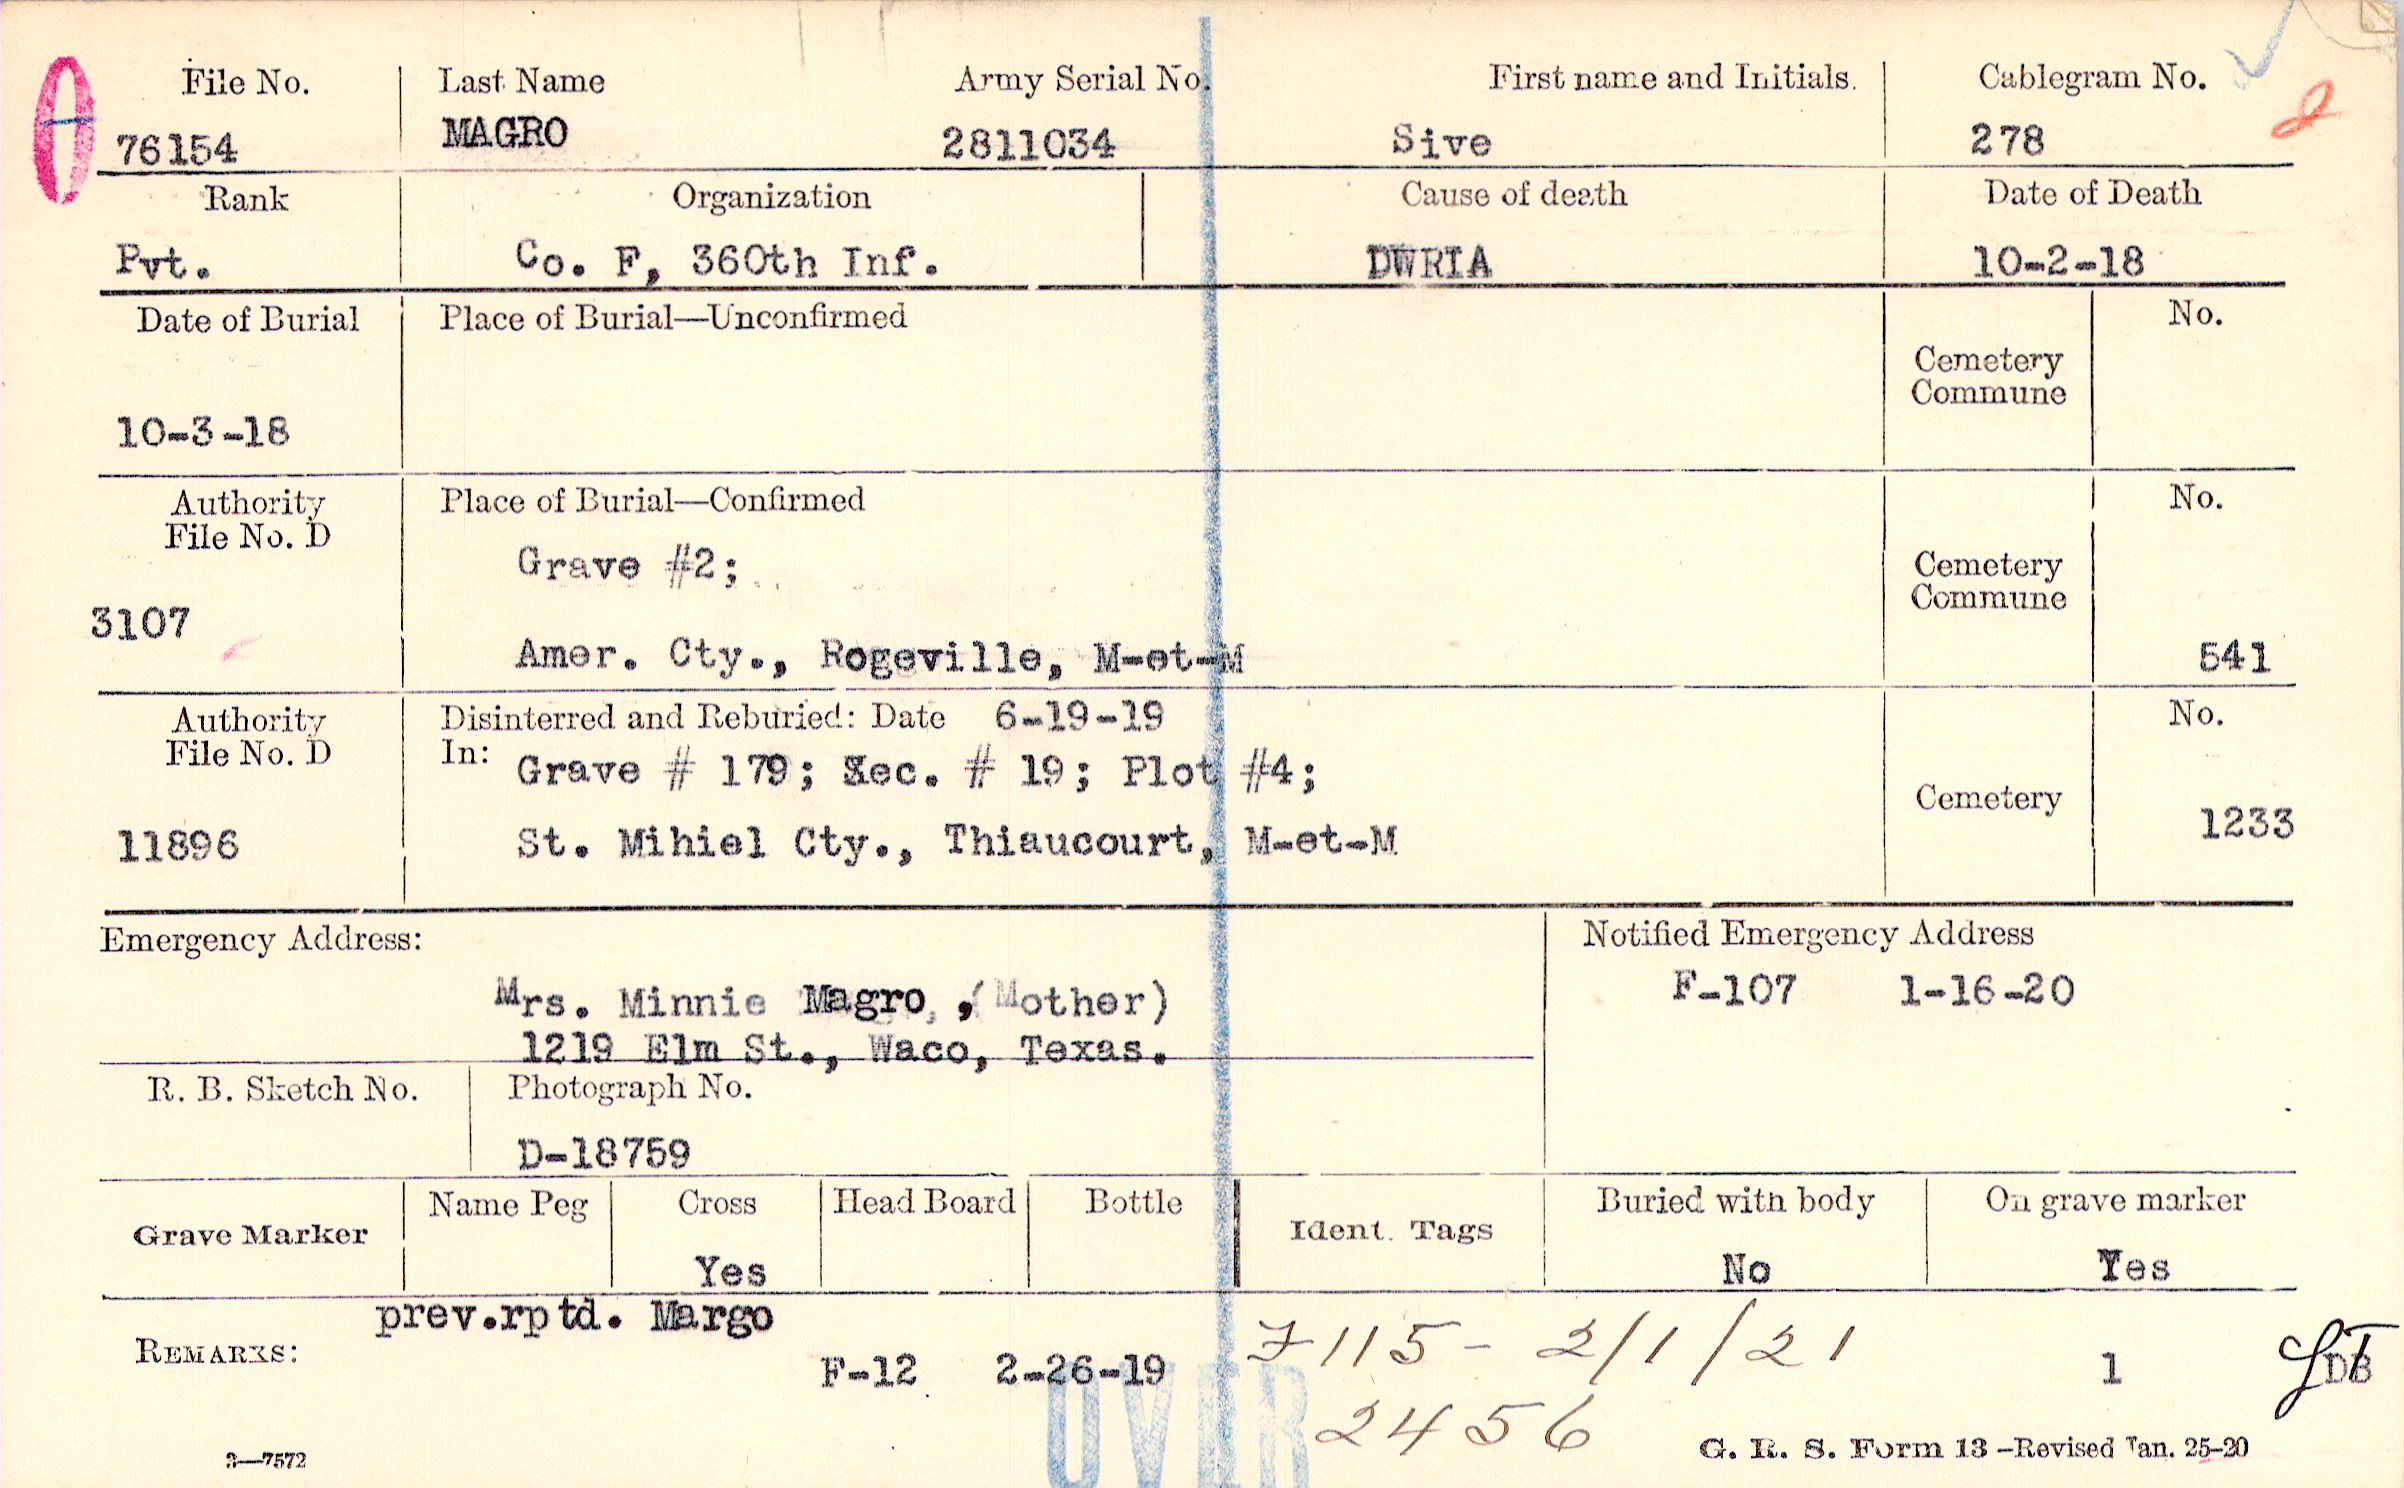 File No. Last Name Army Serial No. First name and Initials. Cablegram No.
76154 MAGRO 2811034 Sive 278
Rank Organization Cause of death Date of Death
Pvt. Co. F, 360th Inf. DWRIA 10-2-18
Date of Burial Place of Burial—Unconfirmed No.
Cemetery
Commune
10-3-18
Authority Place of Burial—Confirmed No.
File No. D
Grave #2; Cemetery
Commune
3107
Amer. Cty., Rogeville, M-et-M 541
Authority Disinterred and Reburied: Date 6-19-19 No.
File No. D In: Grave # 179; Sec. # 19; Plot #4;
Cemetery
11896 St. Mihiel Cty., Thiaucourt, M-et-M 1233
Emergency Address: Notified Emergency Address
Mrs. Minnie Magro, (Mother) F-107 1-16-20
1219 Elm St., Waco, Texas.
R. B. Sketch No. Photograph No.
D-18759
Grave Marker Name Peg Cross Head Board Bottle Ident. Tags Buried with body On grave marker
Yes No Yes
prev.rptd. Margo
REMARKS: F-12 2-26-19 F115 - 2/1/21 1 DB
OVER 2456
3—7572 G. R. S. Form 13 —Revised Jan. 25-20